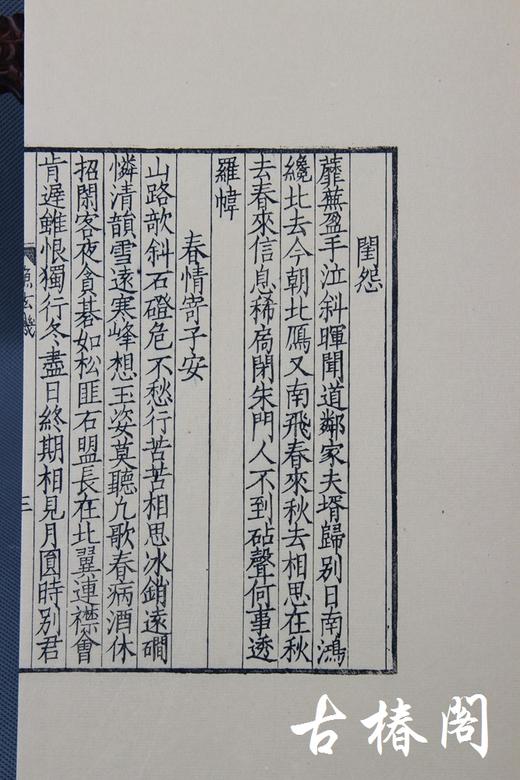 閨怨
蘼蕪盈手泣斜暉聞道鄰家夫壻歸別日南鴻
纔北去今朝北鴈又南飛春來秋去相思在秋
去春來信息稀扃閉朱門人不到砧聲何事透
羅幃
春情寄子安
山路欹斜石磴危不愁行苦苦相思冰銷遠磵
憐清韻雪遠寒峰想玉姿莫聽凡歌春病酒休
招閑客夜貪碁如松匪石盟長在比翼連襟會
肯遲雖恨獨行冬盡日終期相見月圓時別君
魚玄機
三
古椿閣